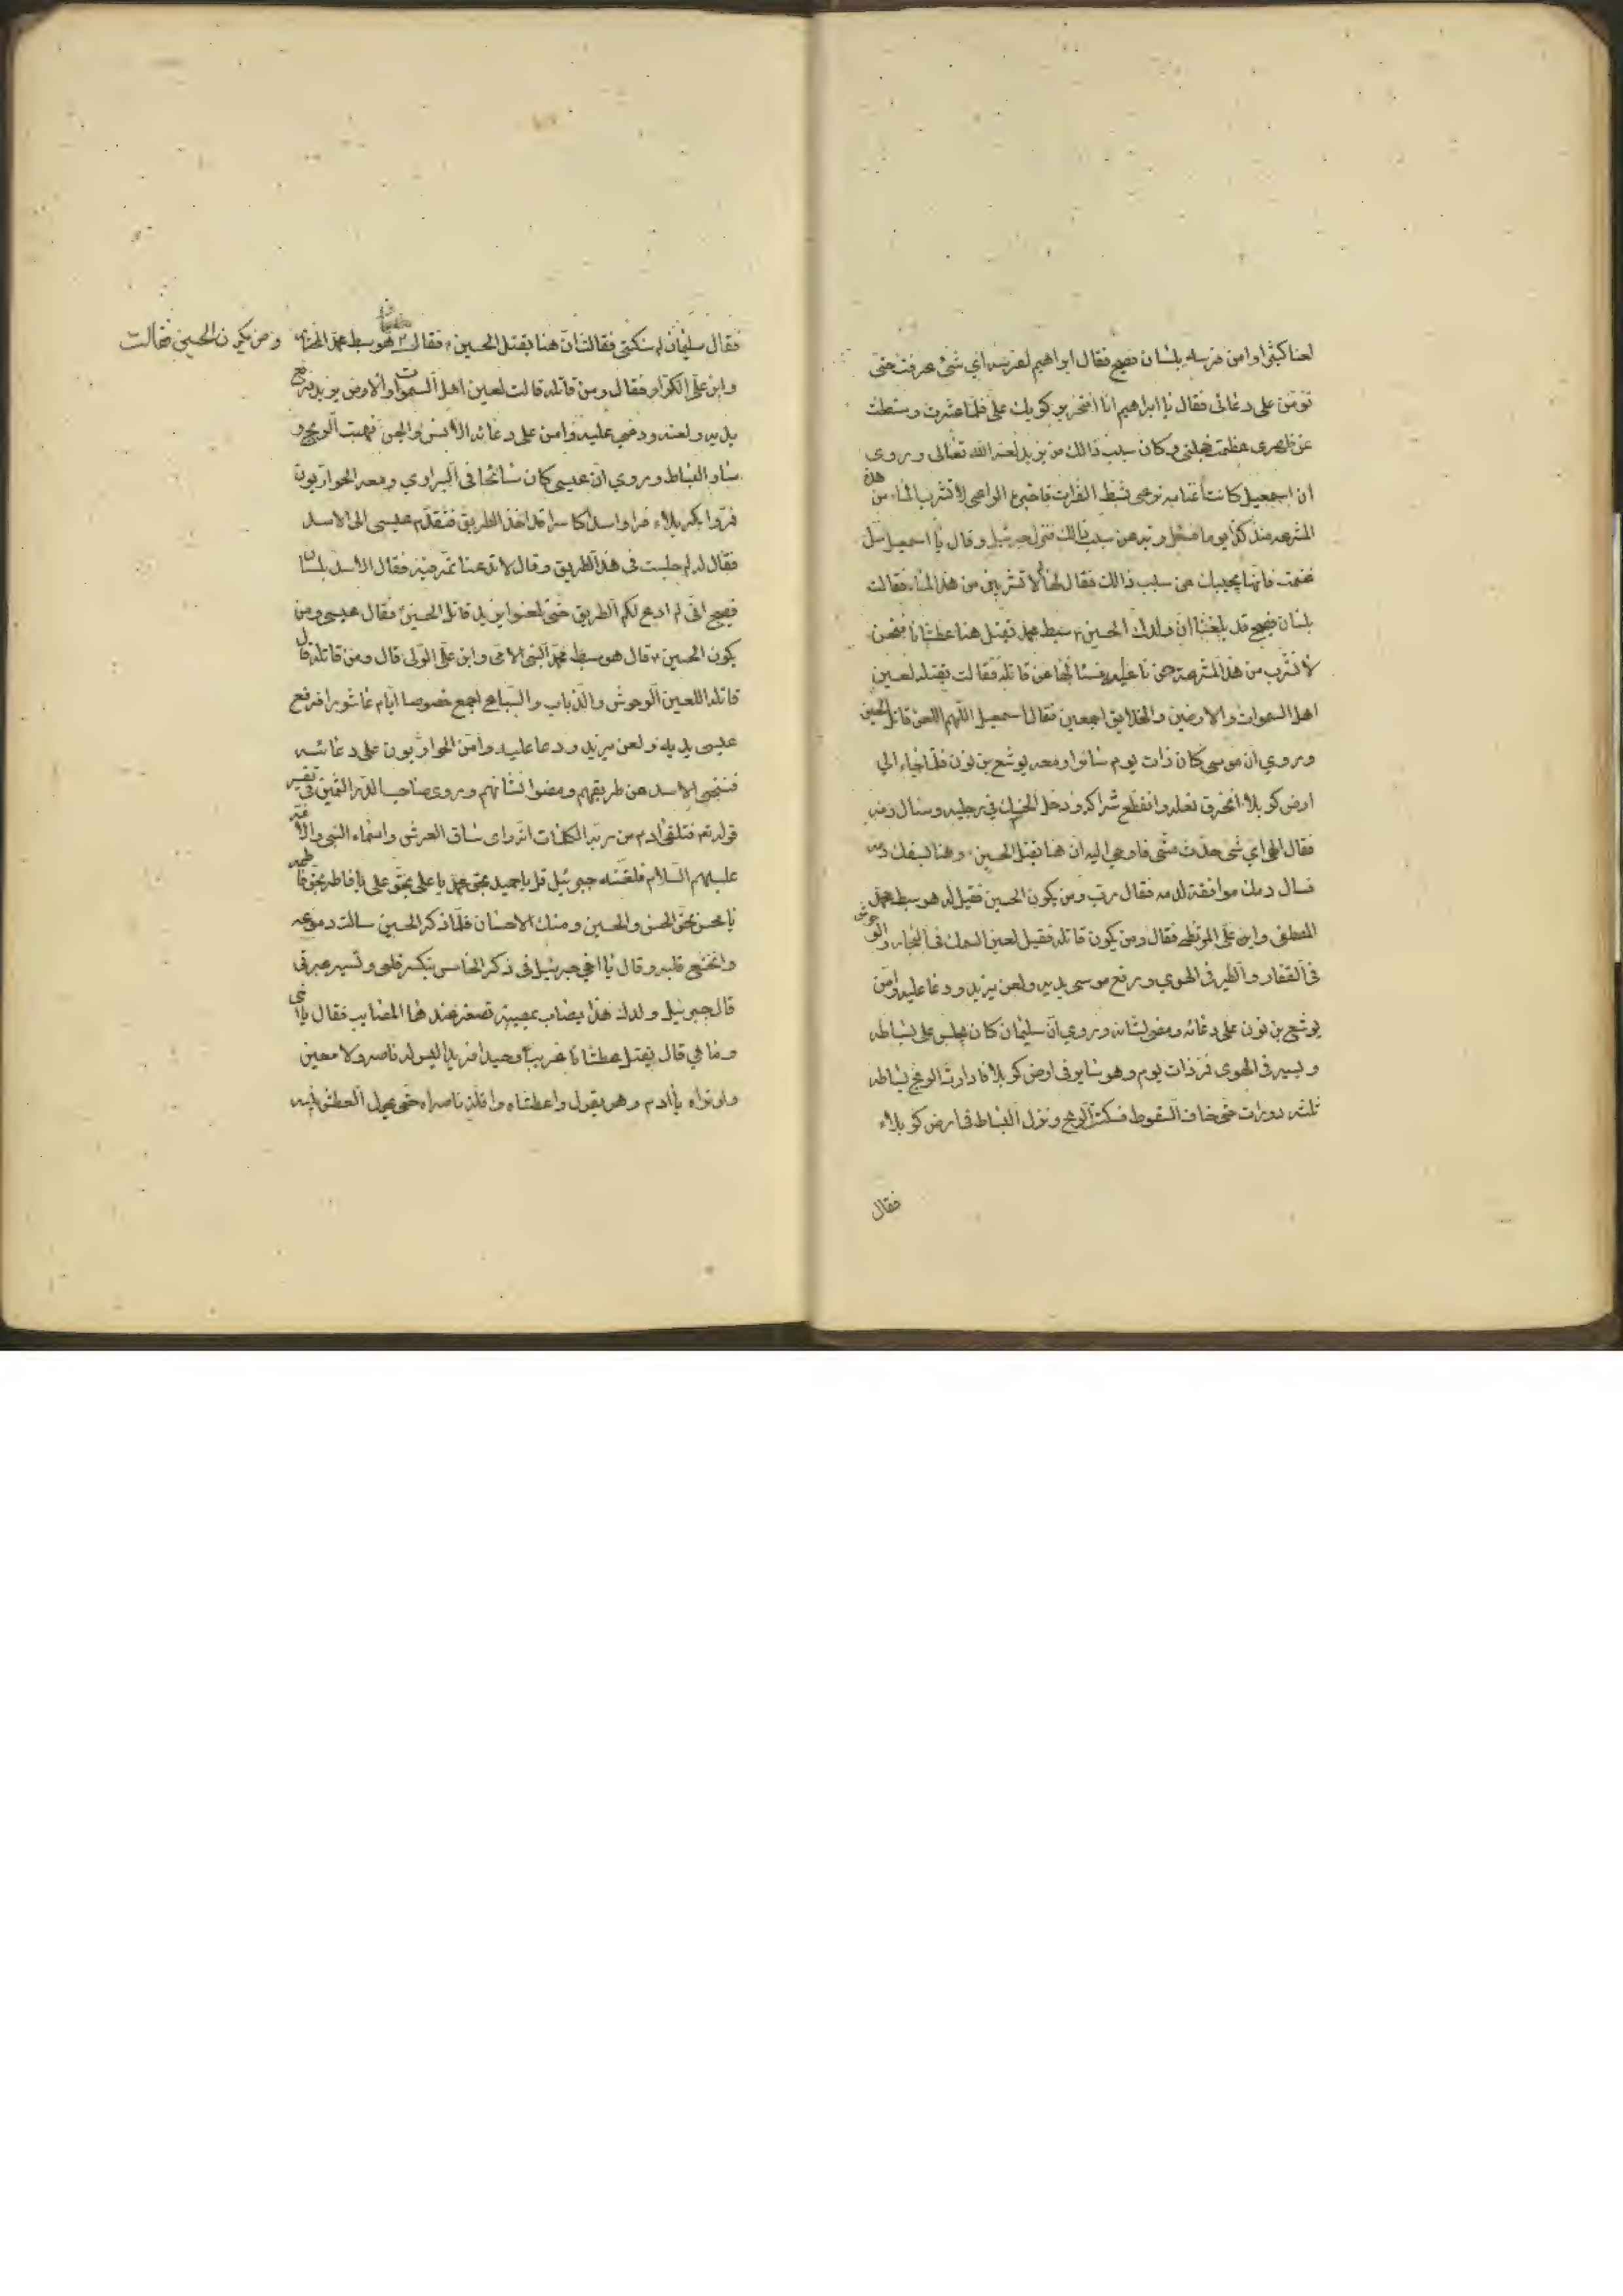 لعنا كثيرا وامن فرسه بلسان فصيح فقال ابراهيم لفرسه اي شئ عرفت حتى
تؤمن على دعائى فقال يا ابراهيم انا افتخر بركوبك على فلما عثرت وسقطت
عن ظهرى عظمت خجلتى وكان سبب ذالك من يزيد لعنه الله تعالى وروى
ان اسمعيل كانت اغنامه ترعى بشط الفرات فاخبره الراعى لا تشرب الماء من هذه
المشرعه منذ كذا يوما فسئل ربه عن سبب ذالك فنزل جبرئيل وقال يا اسمعيل سل
غنمك فانها يجيبك عن سبب ذالك فقال لها لم لا تشربين من هذا الماء فقالت
بلسان فصيح قد بلغنا ان ولدك الحسين ع سبط محمد تقتل هنا عطشانا فنحن
لا نشرب من هذا المشرعه حزنا عليه فسئالها عن قاتله فقالت يقتله لعين
اهل السموات والارضين والخلايق اجمعين فقال اسمعيل اللهم اللعن قاتل الحسين
وروي ان موسى كان ذات يوم سائرا ومعه يوشع بن نون فلما جاء الي
ارض كربلاء انخرق نعله وانقطع شراكه ودخل الخسك في رجليه وسال دمه
فقال الهي اي شئ حدث منى فاوحي اليه ان هنا يقتل الحسين ع وهنا يسفك دمه
فسال دمك موافقة لدمه فقال رب ومن يكون الحسين فقيل له هو سبط محمد
المصطفى وابن على المرتضى فقال ومن يكون قاتله فقيل لعين السمك فى البحار والوحوش
فى القفار والطير فى الهوي ورفع موسى يديه ولعن يزيد ودعا عليه وامن
يوشع بن نون على دعائه ومضى لشانه وروي ان سليمان كان يجلس على بساطه
ويسير فى الهوى فمر ذات يوم وهو ساير فى ارض كربلا فادارت الريح بساطه
ثلثه دورات حتى خاف السقوط فسكنت الريح ونزل البساط فى ارض كربلاء
فقال
فقال سليمان لم سكنتى فقالت ان هنا يقتل الحسين ع فقال ومن يكون الحسين فقالت هو سبط محمد المختار
وابن على الكرار فقال ومن قاتله قالت لعين اهل السموات والارض يزيد فرفع
يديه ولعنه ودعى عليه وامن على دعائه الانس والجن فهبت الريح و
سار البساط وروي ان عيسى كان سائحا فى البراري ومعه الحواريون
فمروا بكربلاء فراوا اسدا كاسرا قد اخذ الطريق فتقدم عيسى الى الاسد
فقال له لم جلست فى هذا الطريق وقال لا تدعنا نمر فيه فقال الاسد بلسان
فصيح انى لم ادع لكم الطريق حتى تلعنوا يزيد قاتل الحسين ع فقال عيسى ومن
يكون الحسين ع قال هو سبط محمد النبى الامى وابن على الولى قال ومن قاتله قال
قاتله اللعين الوحوش والذباب والسباع اجمع خصوصا ايام عاشورا فرفع
عيسى يديه ولعن يزيد ودعا عليه وامن الحواريون على دعائه
فتنحى الاسد عن طريقهم ومضوا لشانهم وروى صاحب الدر الثمين فى تفسير
قوله تعم فتلقى ادم من ربه الكلمات انه راى ساق العرش واسماء النبى والائمه
عليهم السلام فلقنه جبرئيل قل يا حميد بحق محمد يا على بحق على يا فاطر بحق فاطمه
يا محسن بحق الحسن والحسين ومنك الاحسان فلما ذكر الحسين سالت دموعه
وانخشع قلبه وقال يا اخي جبرئيل فى ذكر الخامس ينكسر قلبى وتسير عبرتى
قال جبرئيل ولدك هذا يصاب بمصيبة تصغر عندها المصايب فقال يا اخى
وما هي قال يقتل عطشانا غريبا وحيدا فريدا ليس له ناصر ولا معين
ولو تراه يا ادم وهو يقول واعطشاه واقلة ناصراه حتى يحول العطش بينه